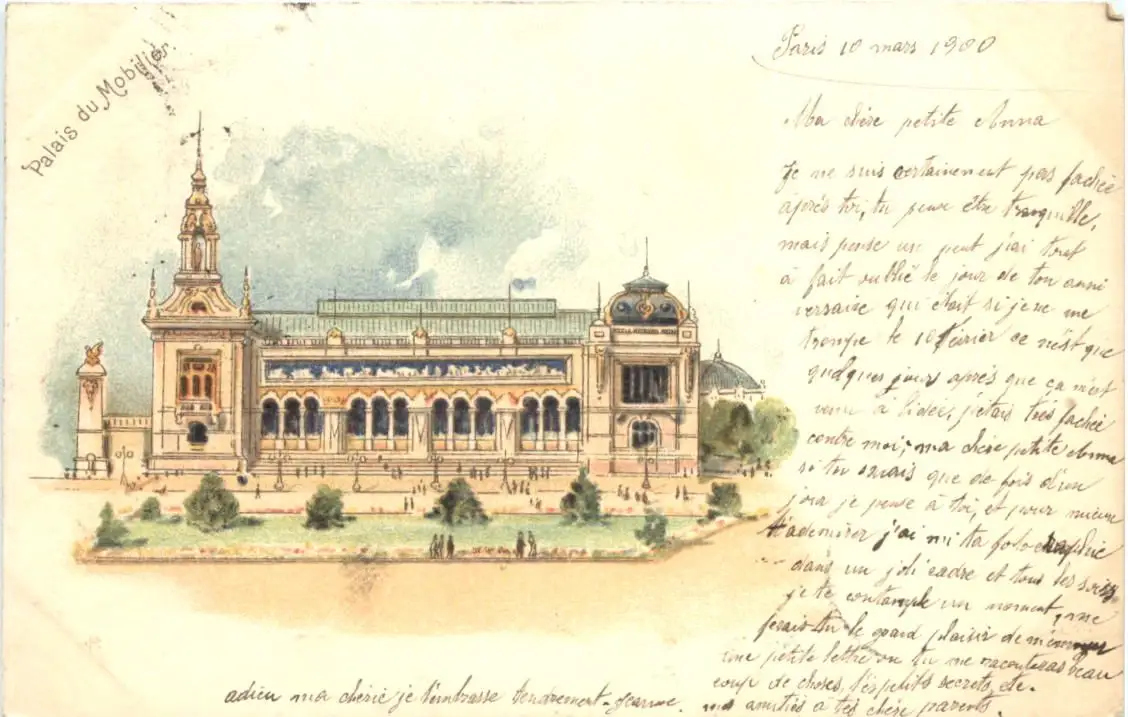 Palais du Mobilier.
Paris 10 mars 1900
Ma chère petite Anna
Je ne suis certainement pas fachée
après toi, tu peux être tranquille,
mais pense un peut j'ai tout
à fait oublié le jour de ton anni
versaire qui était si je ne me
trompe le 10 février ce n'est que
quelques jours après que ça m'est
venu à l'idée, j'étais très fachée
contre moi; ma chère petite Anna
si tu savais que de fois d'un
jour je pense à toi, et pour mieux
t'admirer j'ai mi ta fotographie
dans un joli cadre et tous les soirs
je te contemple un moment, me
ferais tu le grand plaisir de
une petite lettre ou tu me raconteras beau
coup de choses, tes petits secrets, etc.
mes amitiés à tes chère parents.
adieu ma cherie je t'embrasse tendrement - Jeanne.